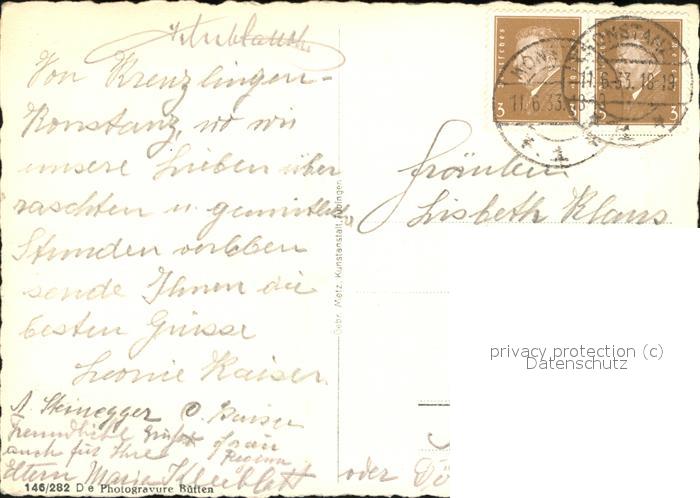 Von Kreuzlingen-
Konstanz, wo wir
unsere Lieben über
raschten u. gemütliche
Stunden verleben
sende Ihnen die
besten Grüsse
Leonie Kaiser
A. Steinegger O. Kaiser
Freundliche Grüsse Frau
auch für Ihre
Eltern Maria Kleeblatt oder
146/282 D e Photogravure Bütten
Gebr. Metz, Kunstanstalt, Tübingen
KONSTANZ
11.6.33.18-19
KONSTANZ
11.6.33.18-19
1
1
3 3
3
Fräulein
Lisbeth Klaus
privacy protection (c)
Datenschutz